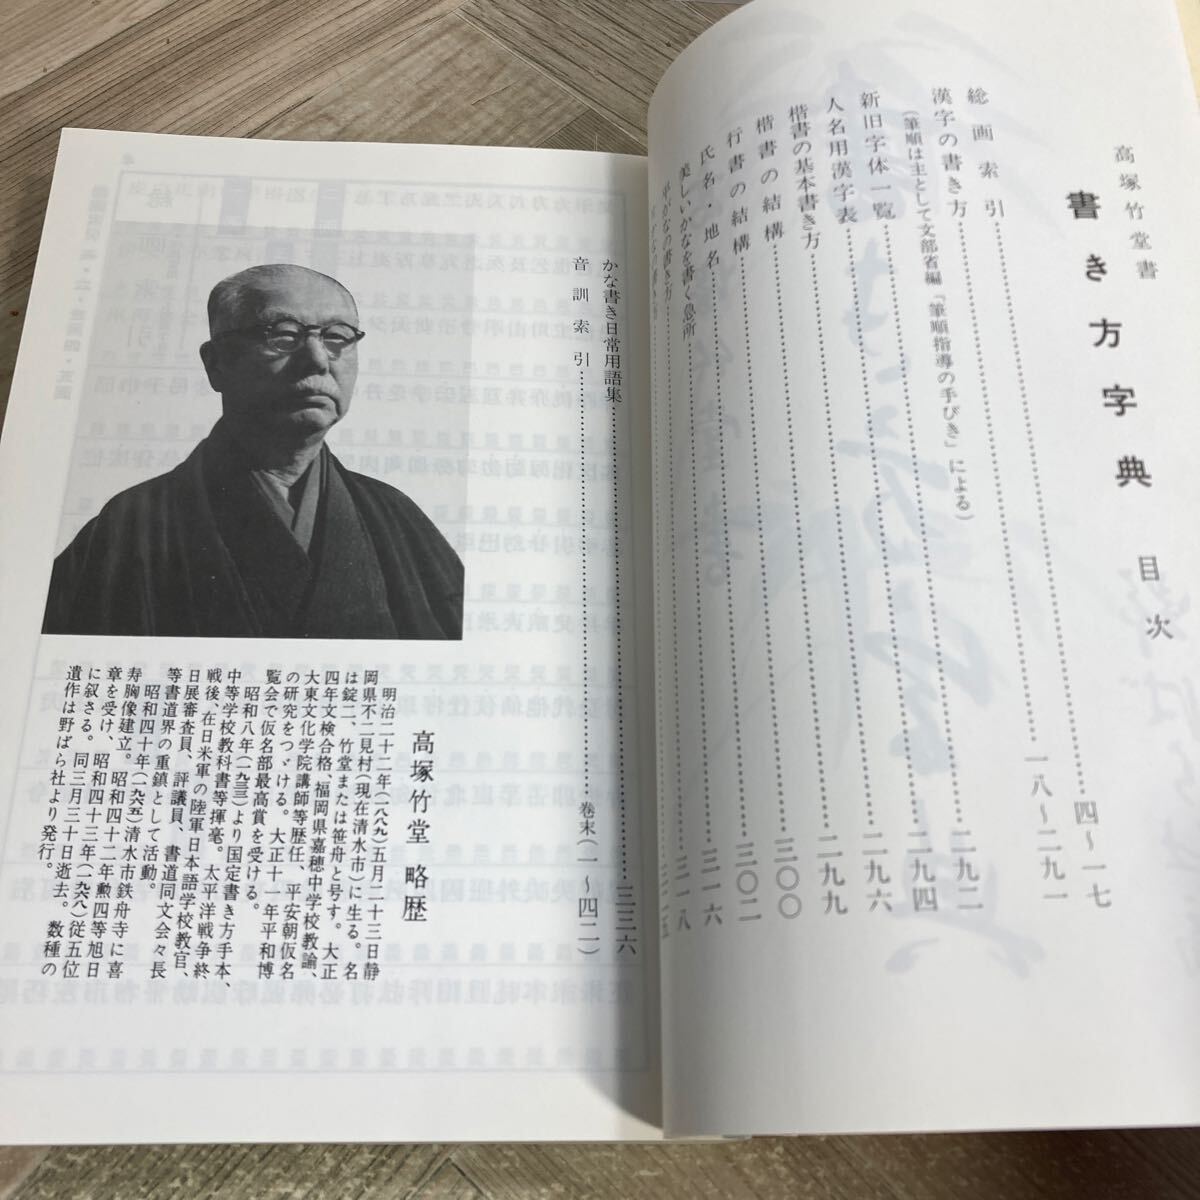 高塚竹堂書
書き方字典 目次
総画索引……四〜一七
漢字の書き方……一八〜二九一
(筆順は主として文部省編「筆順指導の手びき」による)
新旧字体一覧……二九二
人名用漢字表……二九四
楷書の基本書き方……二九六
楷書の結構……二九九
行書の結構……三〇〇
氏名・地名……三〇二
美しいかなを書く急所……三一六
平がなの書き方……三一八
かな書き日常用語集……三三六
音訓索引……巻末(一〜四二)
高塚竹堂 略歴
明治二十二年(一八八九)五月二十三日静
岡県不二見村(現在清水市)に生る。名
は錠二、竹堂または笹舟と号す。大正
四年文検合格、福岡県嘉穂中学校教諭、
大東文化学院講師等歴任、平安朝仮名
の研究をつゞける。大正十一年平和博
覧会で仮名部最高賞を受ける。
昭和八年(一九三三)より国定書き方手本、
中等学校教科書等揮毫。太平洋戦争終
戦後、在日米軍の陸軍日本語学校教官、
日展審査員、評議員、書道同文会々長
等書道界の重鎮として活動。
昭和四十年(一九六五)清水市鉄舟寺に喜
寿胸像建立。昭和四十二年勲四等旭日
章を受け、昭和四十三年(一九六八)従五位
に叙さる。同三月三十日逝去。数種の
遺作は野ばら社より発行。